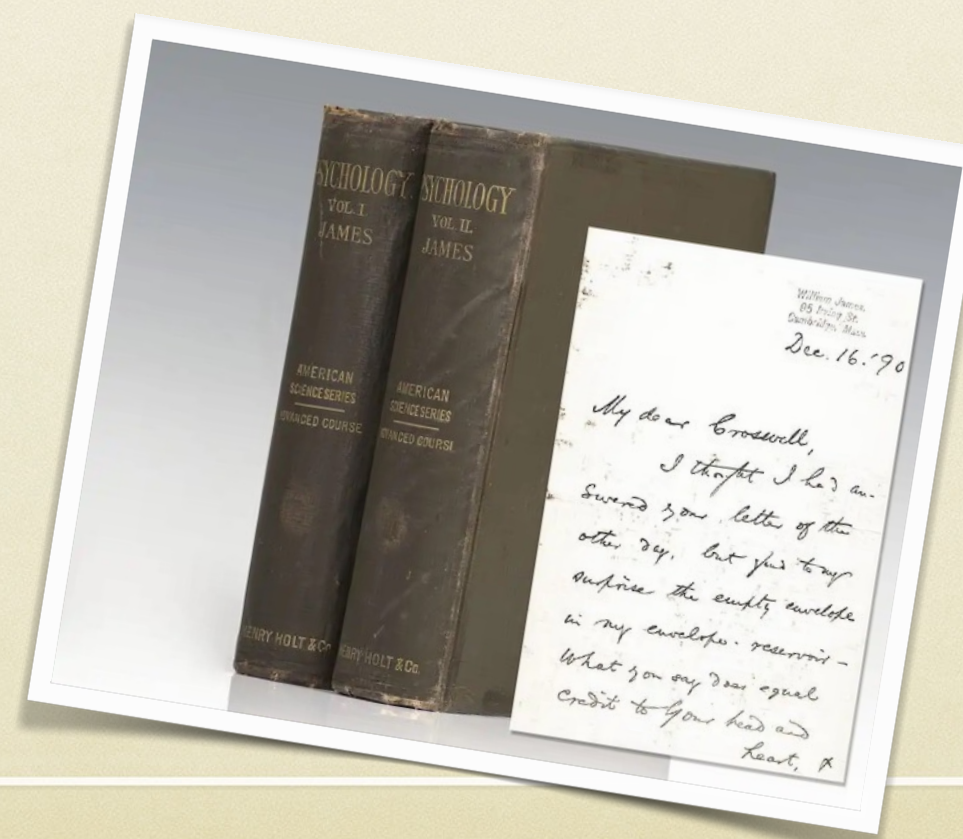 SYCHOLOGY.
VOL. I.
JAMES
AMERICAN
SCIENCE SERIES
DVANCED COURSE
HENRY HOLT & Co
SYCHOLOGY
VOL. II.
JAMES
AMERICAN
SCIENCE SERIES
DVANCED COURSE
HENRY HOLT & Co.
William James.
95 Irving St.
Cambridge Mass.
Dec. 16. '90
My dear Croswell,
I thought I had an-
swered your letter of the
other day, but find to my
surprise the empty envelope
in my envelope-reservoir –
What you say does equal
credit to your head and
heart, &